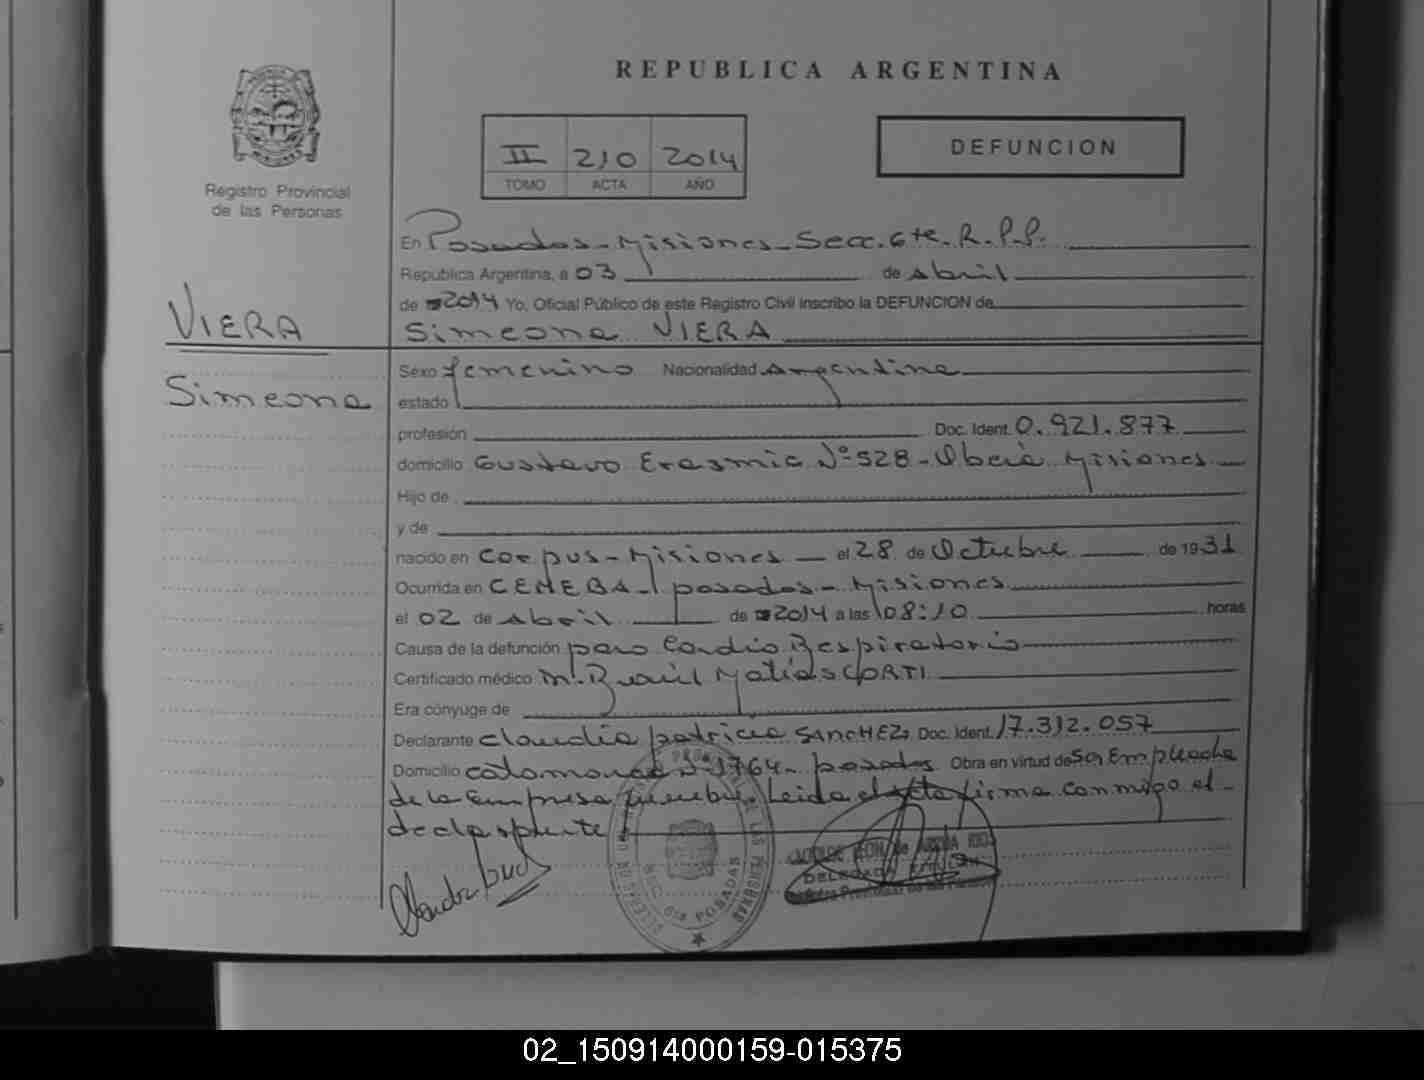 REPUBLICA ARGENTINA
II 210 2014
TOMO ACTA AÑO
DEFUNCION
Registro Provincial
de las Personas
VIERA
Simeona
En Posadas - Misiones - Secc. 6ta. R.P.P.
Republica Argentina, a 03 de abril
de 2014 Yo, Oficial Público de este Registro Civil inscribo la DEFUNCION de
Simeona VIERA
Sexo femenino Nacionalidad Argentina
estado
profesión Doc. Ident. 0.921.877
domicilio Gustavo Nº 528 - Oberá Misiones
Hijo de
y de
nacido en Corpus - Misiones el 28 de Octubre de 1931
Ocurrida en CEMEBA - posadas - Misiones
el 02 de abril de 2014 a las 08:10 horas
Causa de la defunción paro Cardio Respiratorio
Certificado médico Matías CORTI
Era cónyuge de
Declarante claudia patricia SANCHEZ Doc. Ident. 17.312.057
Domicilio 1764 - posadas Obra en virtud de Ser Empleada
de la Empresa Leida el acta firma conmigo el
declarante
02_150914000159-015375